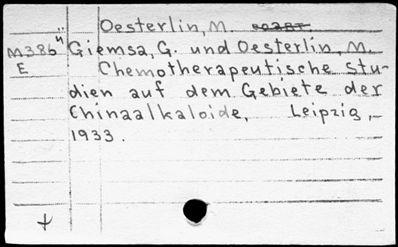 Oesterlin, M.
M386" Giemsa, G. und Oesterlin, M.
E Chemotherapeutische Stu-
dien auf dem Gebiete der
Chinaalkaloide, Leipzig,
1933.